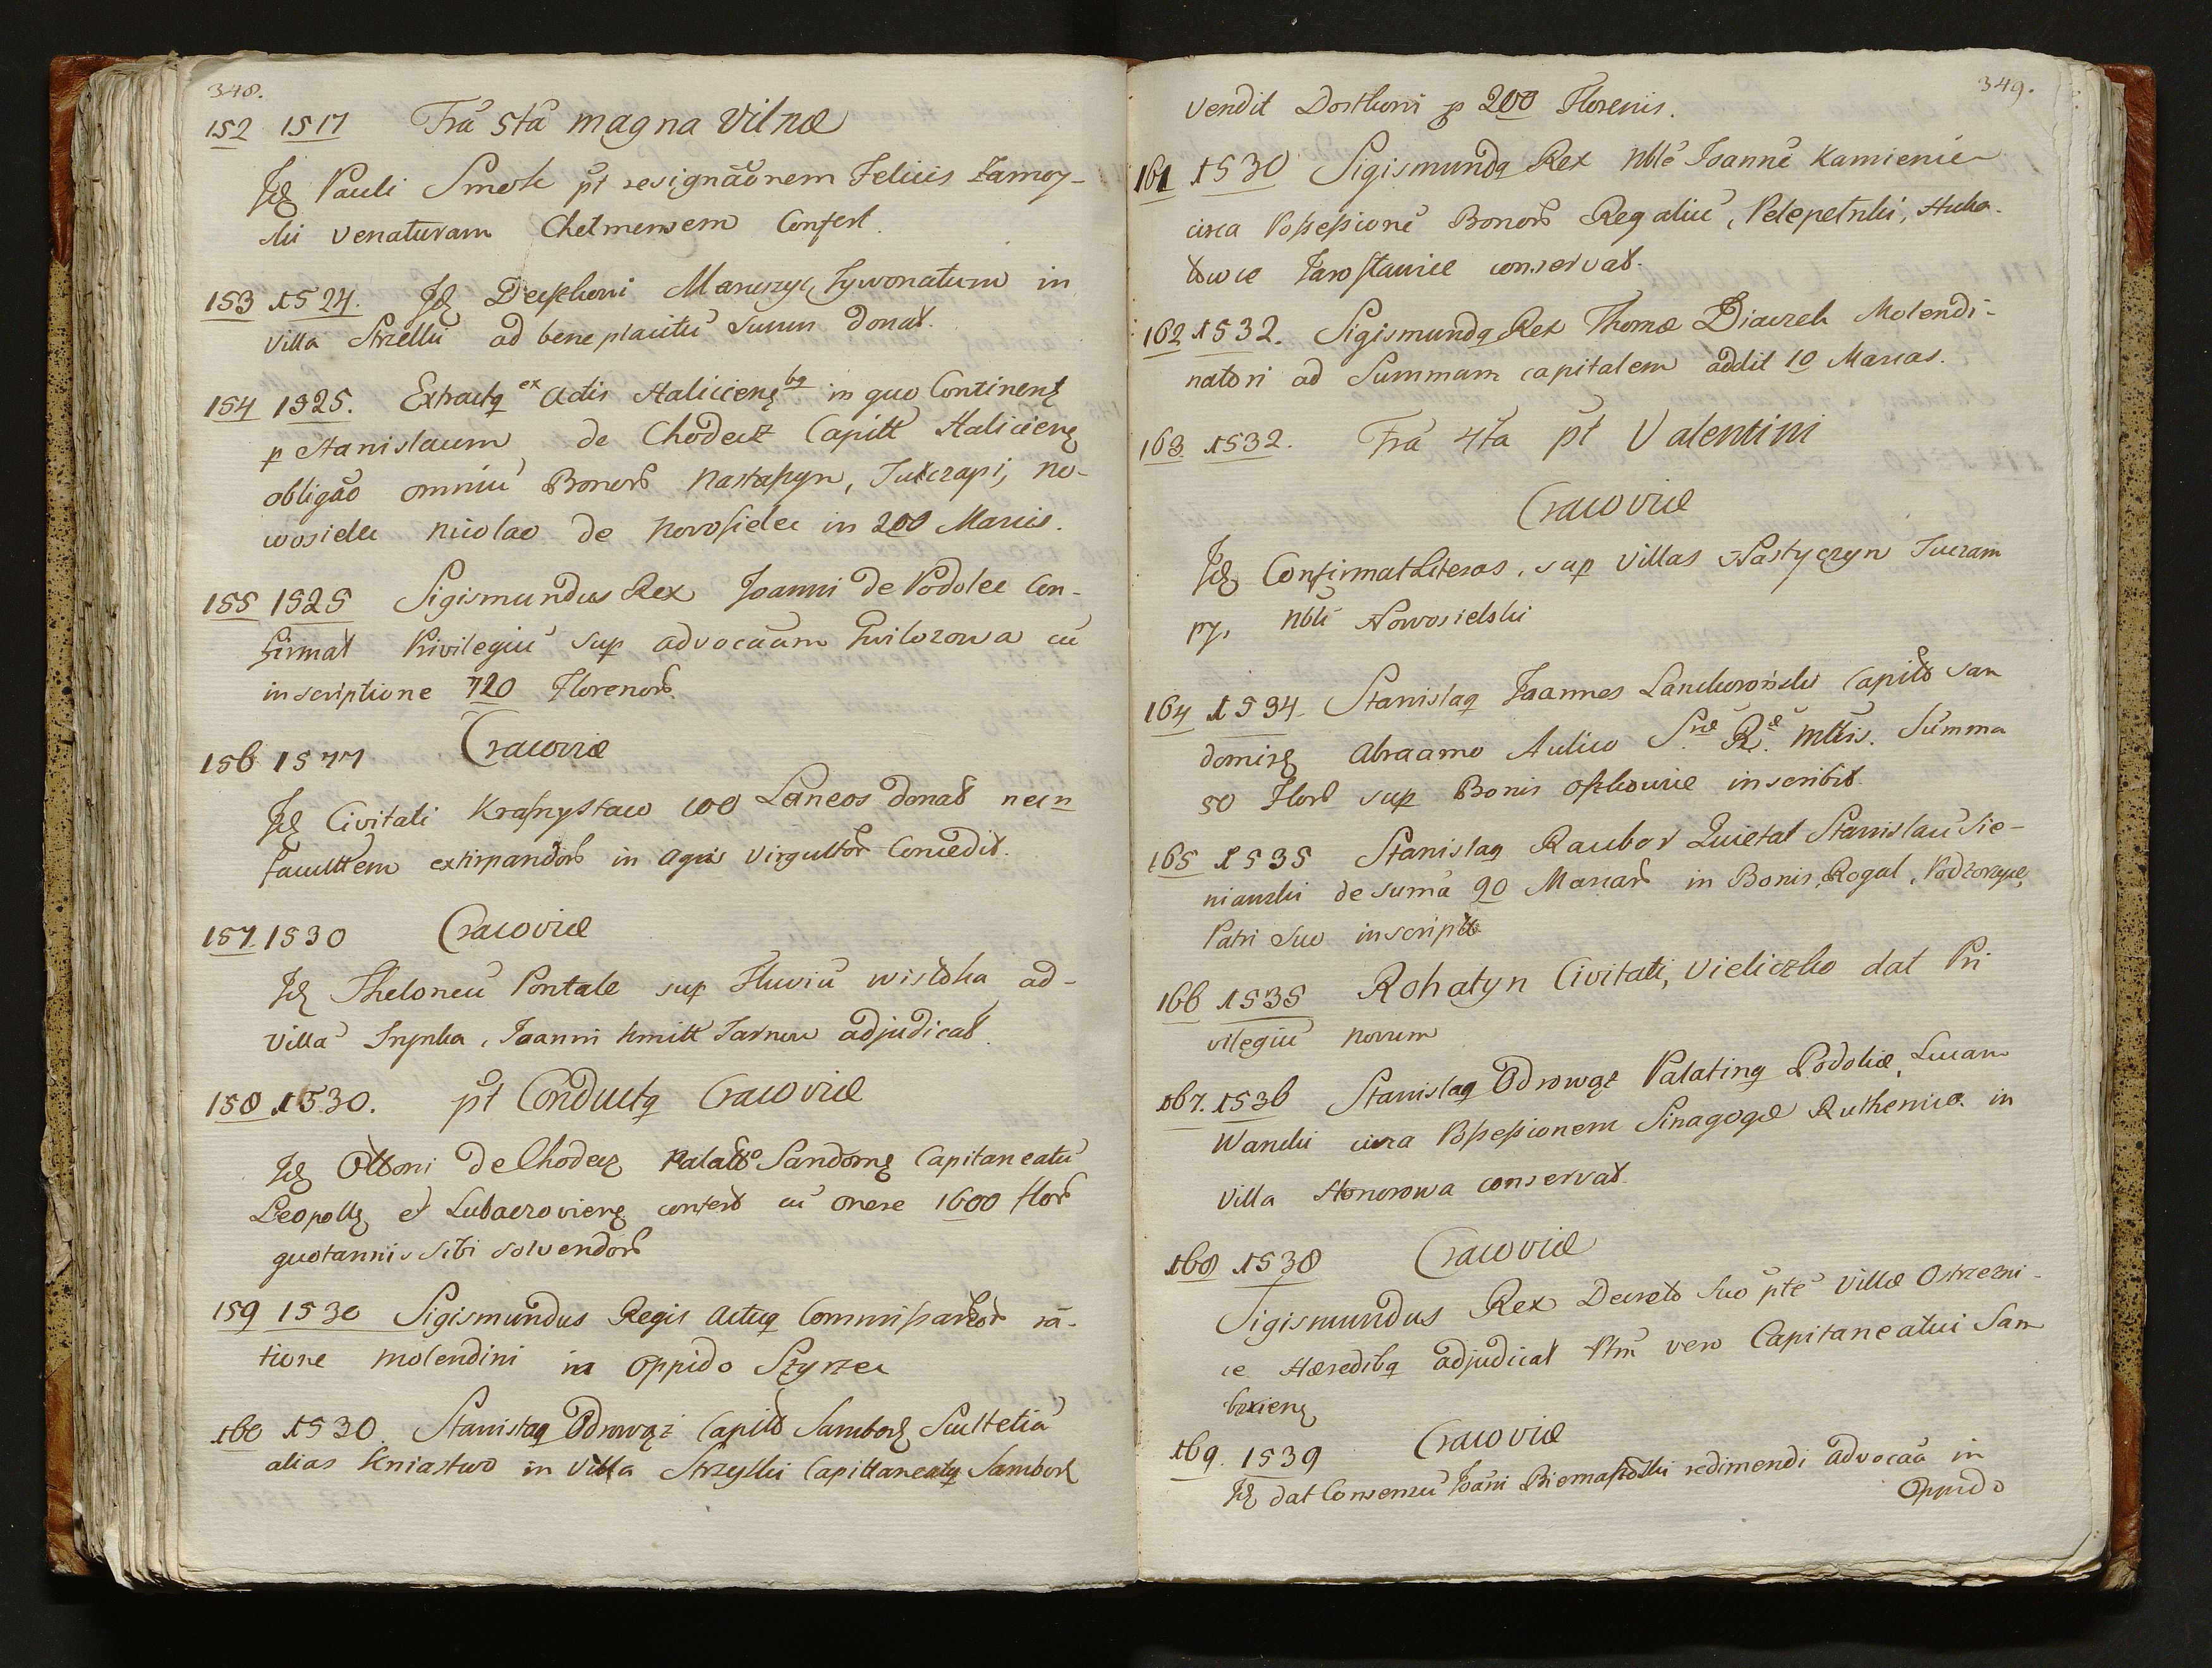 348.
152 1517 Frã 5tã magna Vilnæ
Jd Pauli Smok pt resignãonem Felicis Zamoy-
ski venaturam Chelmensem Confert.
153 1524. Jd Manczyc Tywonatum in
villa Strzelki ad beneplacitũ suum donat.
154 1525. Extractq ex Actis Haliciensbq in quo Continent
p Stanislaum de Chodecz Capitt Haliciens
obligão omniũ Bonor Nastaszyn, Tuczapi, No-
wosielec Nicolao de Novosielec in 200 Marcis.
155 1525 Sigismundus Rex Joanni de Podolec Con-
firmat Privilegiũ sup advocãam cũ
inscriptione 720 Florenor
156 1577 Cracoviæ
Jd Civitati Krasnystaw 100 Laneos donat necn
facultem extirpandor in agris virgultor Concedit.
157 1530 Cracoviæ
Jd Theloneũ Pontale sup Fluviũ Wisloka ad-
villã Joanni Kmitt Tarnow adjudicat.
158 1530. pt Conductq Cracoviæ
Jd Ottoni de Chodecz Palatto Sandoms Capitaneatũ
Leopolls et Lubaczoviens confert cũ onere 1600 flor
quotannis sibi solvendor
159 1530 Sigismundus Regis Actuq Commissarior rã-
tione molendini in oppido Szyrzec
160 1530. Stanislaq Odrowąż Capitt Sambors Scultetiã
alias Kniastwo in Villa Strzyłki Capittaneatq Sambors
349.
vendit p 200 Florenis.
161 1530 Sigismundq Rex Nblẽ Joannẽ Kamieniec
circa Possessionẽ Bonor Regaliũ, Pelepelniki, Huka-
lowce Jarosławice conservat.
162 1532. Sigismundq Rex Thomæ Diaczek Molendi-
natori ad Summam capitalem addit 10 Marcas.
163 1532. Frã 4ta pt Valentini
Cracoviæ
Jd Confirmat Literas, sup villas Nastyczyn Tuczam
py, Nbli Nowosielski
164 1534 Stanislaq Joannes Lanckoroński Capitt San
domirs Abraamo Aulico Snæ Ræ Mttis. Summã
50 Flor sup Bonis inscribit.
165 1535 Stanislaq Raubor Quietat Stanislaũ Sie-
niawski de sumã 90 Marcar in Bonis Regal,
Patri suo inscript
166 1535 Rohatyn Civitati, Vieliczko dat Pri
vilegiũ novum
167. 1536 Stanislaq Odrowąż Palatinq Podoliæ, Lucam
Wancki circa Possessionem Sinagogæ Ruthenicæ in
villa Honorowa conservat.
168 1538 Cracoviæ
Sigismundus Rex Decreto suo ptẽ villæ Ostrzezni-
ce Hæredibq adjudicat Ptm vero Capitaneatui Sam
boriens
169. 1539 Cracoviæ
Jd dat Consensũ Joãni redimendi advocãa in
Oppido